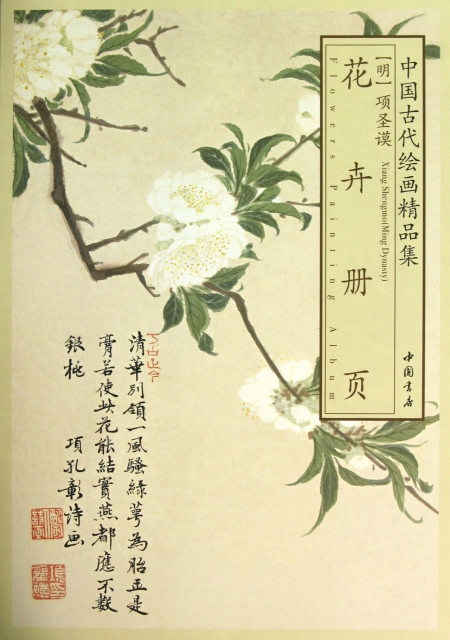 中国古代绘画精品集
【明】项圣谟
Xiang Shengmo(Ming Dynasty)
花卉册页
Flowers Painting Album
中国书店
清華別領一風騷緑萼為胎玉是
膏若使此花能結實燕都應不數
銀桃 項孔彰詩画